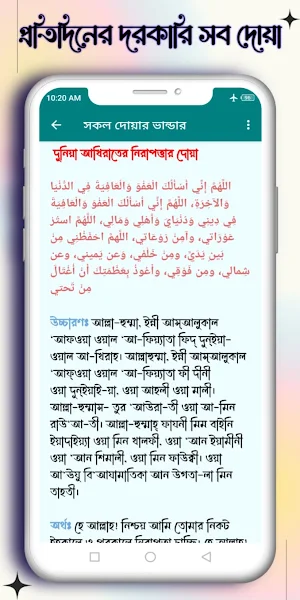 প্রতিদিনের দরকারি সব দোয়া
10:20 AM
95
সকল দোয়ার ভান্ডার
দুনিয়া আখিরাতের নিরাপত্তার দোয়া
اللَّهُمَّ إِنِّي أَسْأَلُكَ الْعَفْوَ وَالْعَافِيَةَ فِي الدُّنْيَا
وَالآخِرَةِ، اللَّهُمَّ إِنِّي أَسْأَلُكَ الْعَفْوَ وَالْعَافِيَةَ
فِي دِينِي وَدُنْيَايَ وَأَهْلِي وَمَالِي، اللَّهُمَّ اسْتُرْ
عَوْرَاتِي، وَآمِنْ رَوْعَاتِي، اللَّهُمَّ احْفَظْنِي مِنْ
بَيْنِ يَدَيَّ، وَمِنْ خَلْفِي، وَعَنْ يَمِينِي، وَعَنْ
شِمَالِي، وَمِنْ فَوْقِي، وَأَعُوذُ بِعَظَمَتِكَ أَنْ أُغْتَالَ
مِنْ تَحْتِي
উচ্চারণঃ আল্লা-হুম্মা, ইন্নী আস্আলুকাল
‘আফওয়া ওয়াল ‘আ-ফিয়্যাতা ফিদ্ দুনইয়া-
ওয়াল আ-খিরাহ। আল্লাহুম্মা, ইন্নী আস্আলুকাল
‘আফ্ওয়া ওয়াল ‘আ-ফিয়্যাতা ফী দীনী
ওয়া দুনইয়াই-য়া, ওয়া আহলী ওয়া মালী।
আল্লা-হুম্মাস- তুর ‘আউরা-তী ওয়া আ-মিন
রাউ‘আ-তী। আল্লা-হুম্মাহ্ ফাযনী মিম বাইনি
ইয়াদ্ইয়্যা ওয়া মিন খালফী, ওয়া ‘আন ইয়ামীনী
ওয়া ‘আন শিমালী, ওয়া মিন ফাউক্বী। ওয়া
আ‘উযু বি‘আযামাতিকা আন উগতা-লা মিন
তাহতী।
অর্থঃ হে আল্লাহ! নিশ্চয় আমি তোমার নিকট